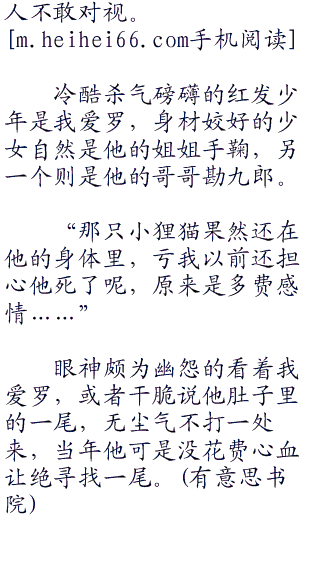 人不敢对视。
[m.heihei66.com手机阅读]
冷酷杀气磅礴的红发少
年是我爱罗，身材姣好的少
女自然是他的姐姐手鞠，另
一个则是他的哥哥勘九郎。
“那只小狸猫果然还在
他的身体里，亏我以前还担
心他死了呢，原来是多费感
情……”
眼神颇为幽怨的看着我
爱罗，或者干脆说他肚子里
的一尾，无尘气不打一处
来，当年他可是没花费心血
让绝寻找一尾。(有意思书
院)